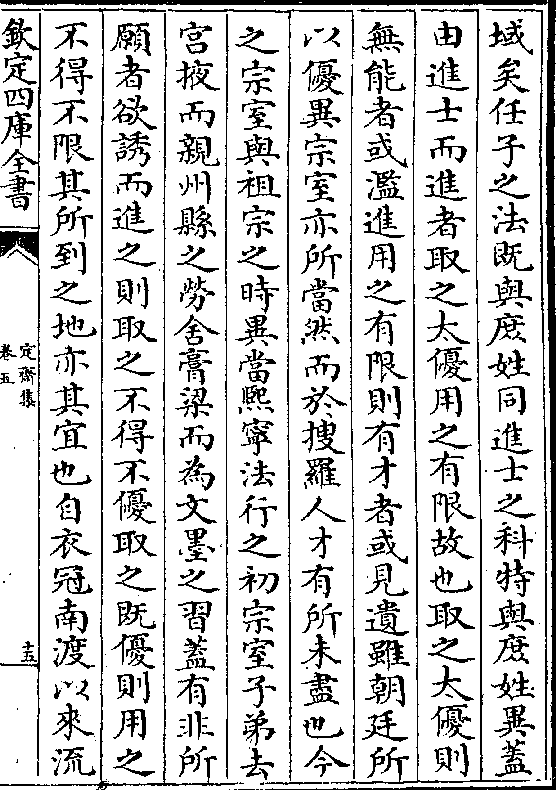 域矣任子之法既與庶姓同進士之科特與庶姓異蓋
由進士而進者取之太優用之有限故也取之太優則
無能者或濫進用之有限則有才者或見遺雖朝廷所
以優異宗室亦所當然而於搜羅人才有所未盡也今
之宗室與祖宗之時異當熙寧法行之初宗室子弟去
宫掖而親州縣之勞舍膏粱而為文墨之習蓋有非所
願者欲誘而進之則取之不得不優取之既優則用之
不得不限其所到之地亦其宜也自衣冠南渡以來流
欽定四庫全書
定齋集
卷五
十五